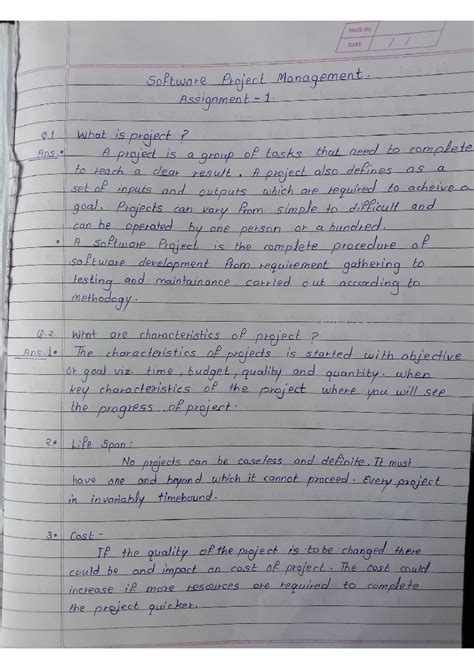 PAGE No.
DATE / /
Software Project Management.
Assignment - 1.
Q.1 What is project ?
Ans. • A project is a group of tasks that need to complete
to reach a clear result. A project also defines as a
set of inputs and outputs which are required to acheive a
goal. Projects can vary from simple to difficult and
can be operated by one person or a hundred.
• A Software Project is the complete procedure of
software development from requirement gathering to
testing and maintainance carried out according to
methodogy.
Q.2. What are characteristics of project ?
Ans. 1• The characteristics of projects is started with objective
or goal viz time, budget, quality and quantity. when
key characteristics of the project where you will see
the progress of project.
2• Life Span :
No projects can be caseless and definite. It must
have one and beyond which it cannot proceed. Every project
in invariably timebound.
3• Cost -
If the quality of the project is to be changed there
could be and impact on cost of project. The cost could
increase if more resources are required to complete
the project quicker.